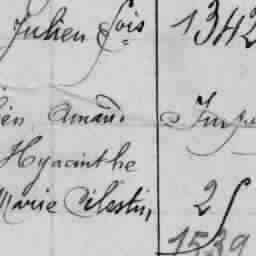 Julien fois 1342
en Amand.
Hyacinthe
Marie Célestin, 2
1539